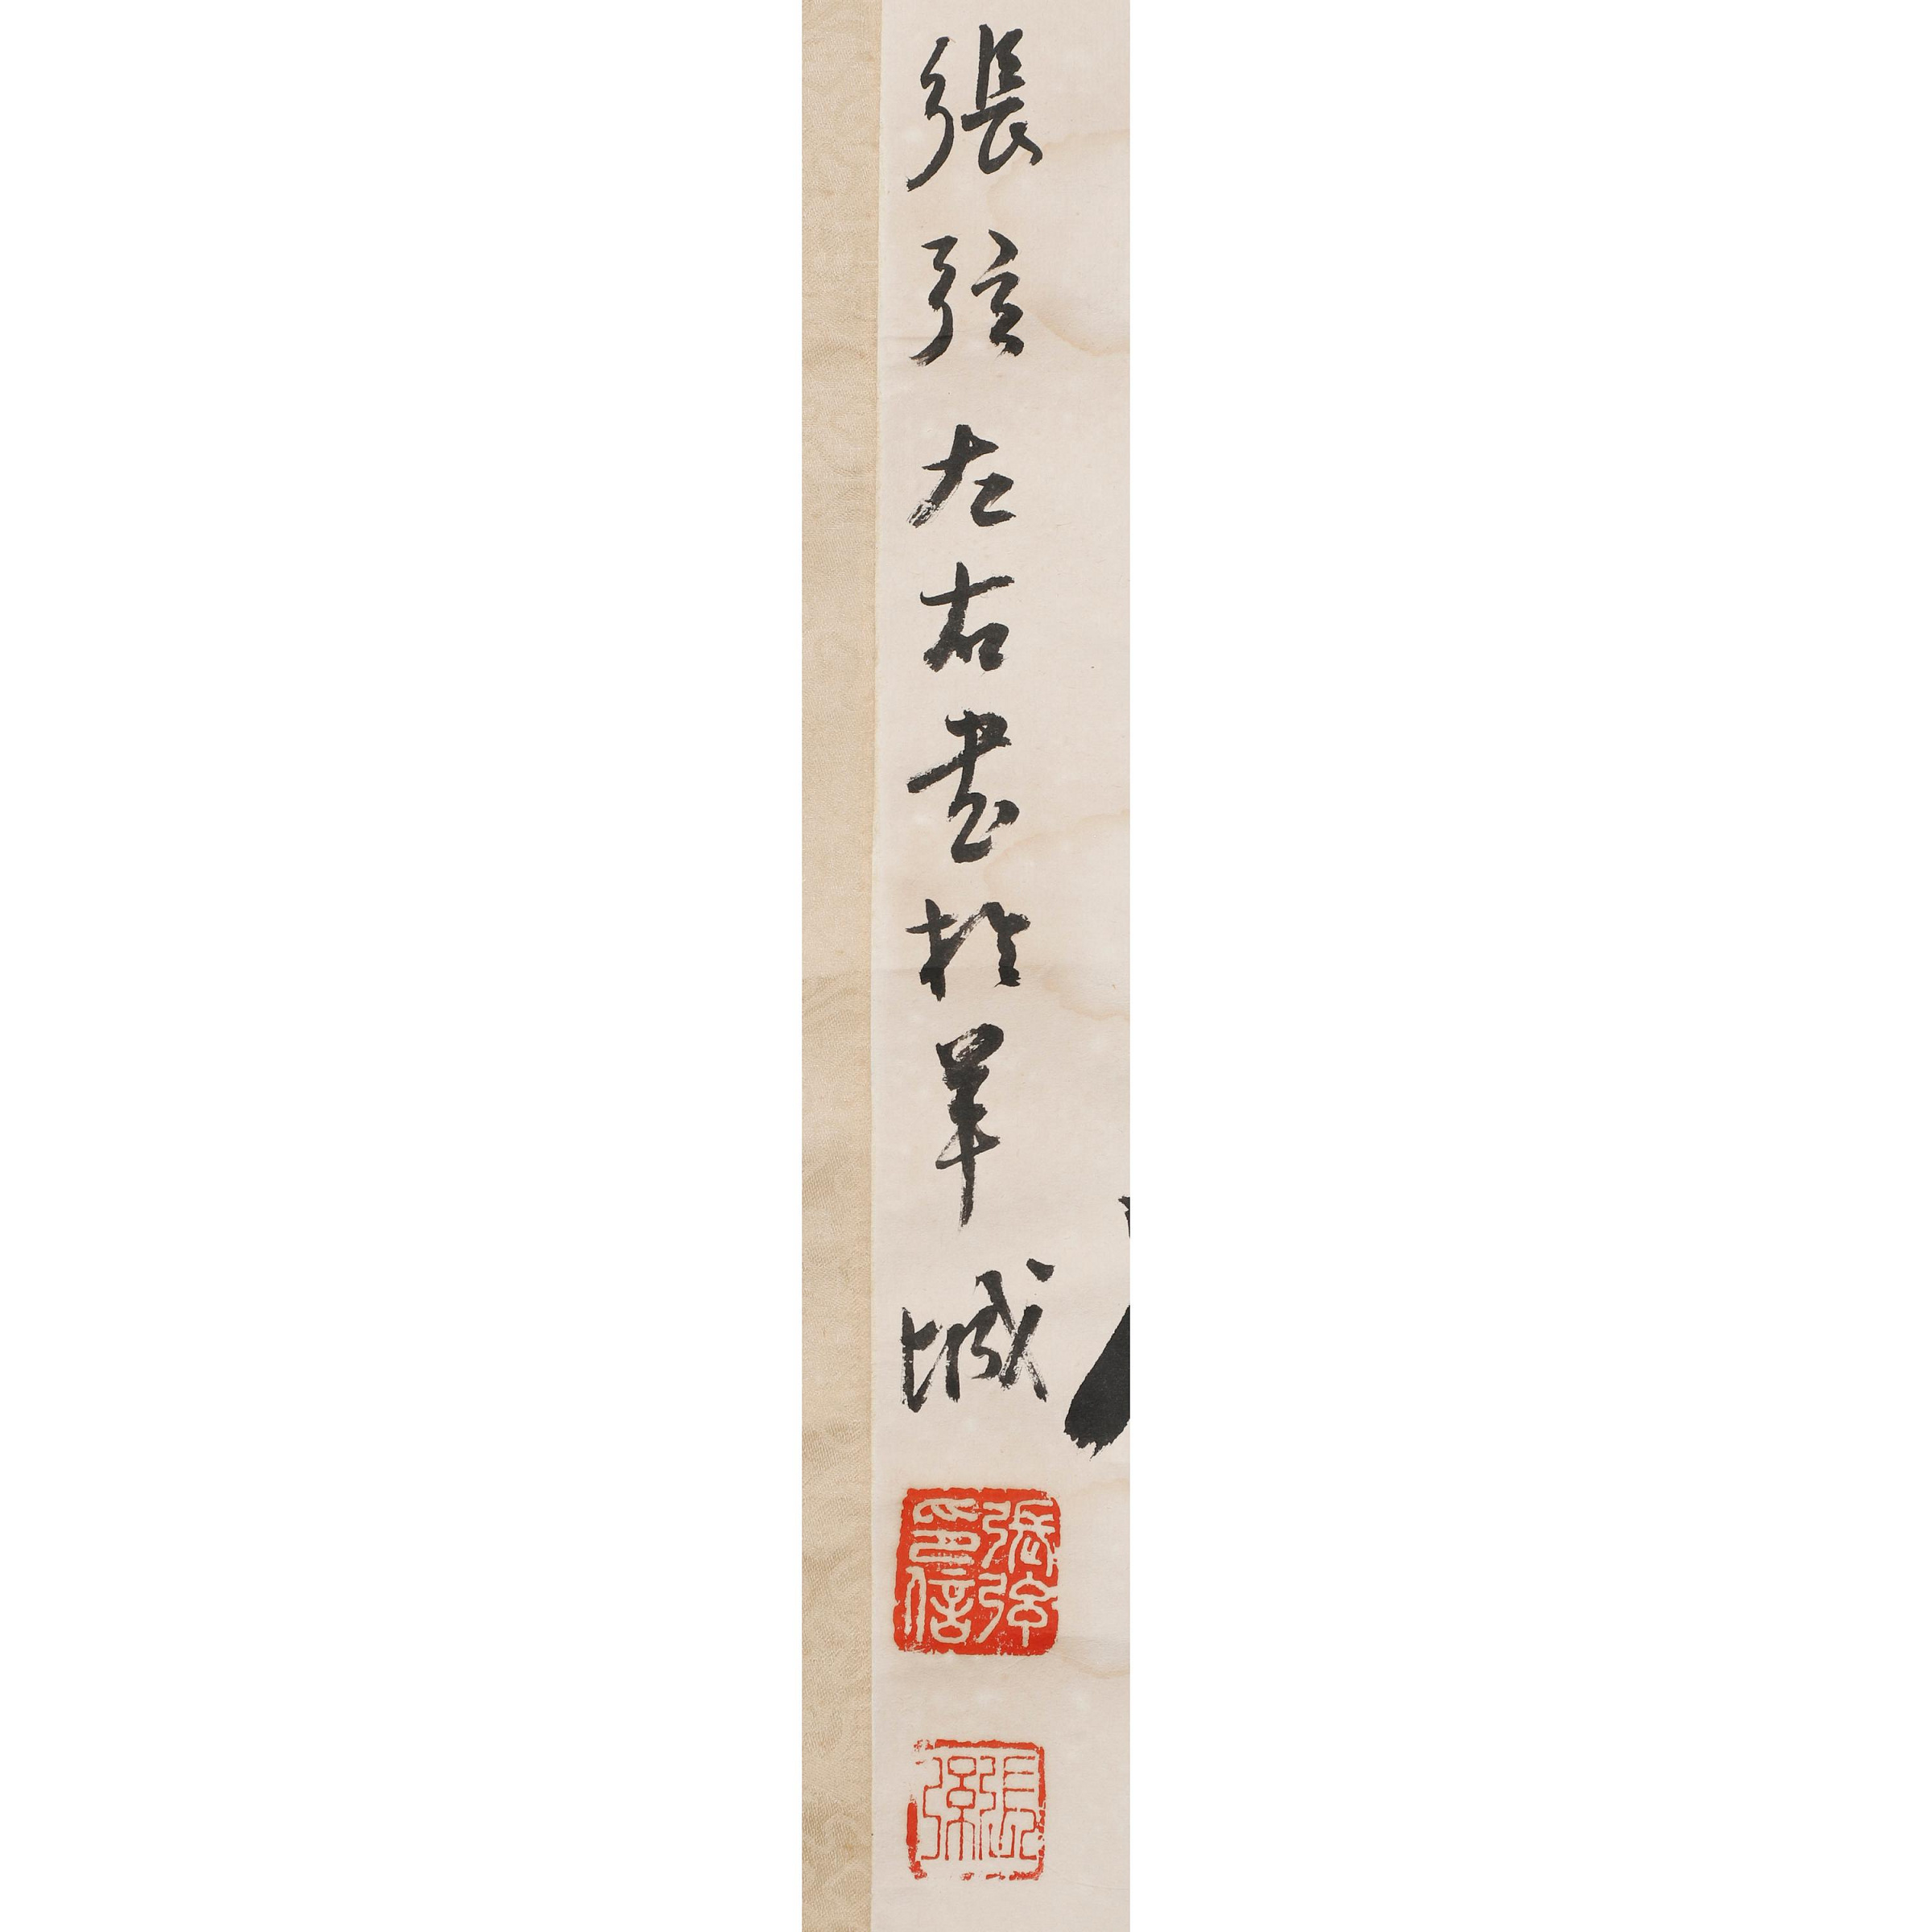 張弦左右書於羊城
張弦印信
張弦